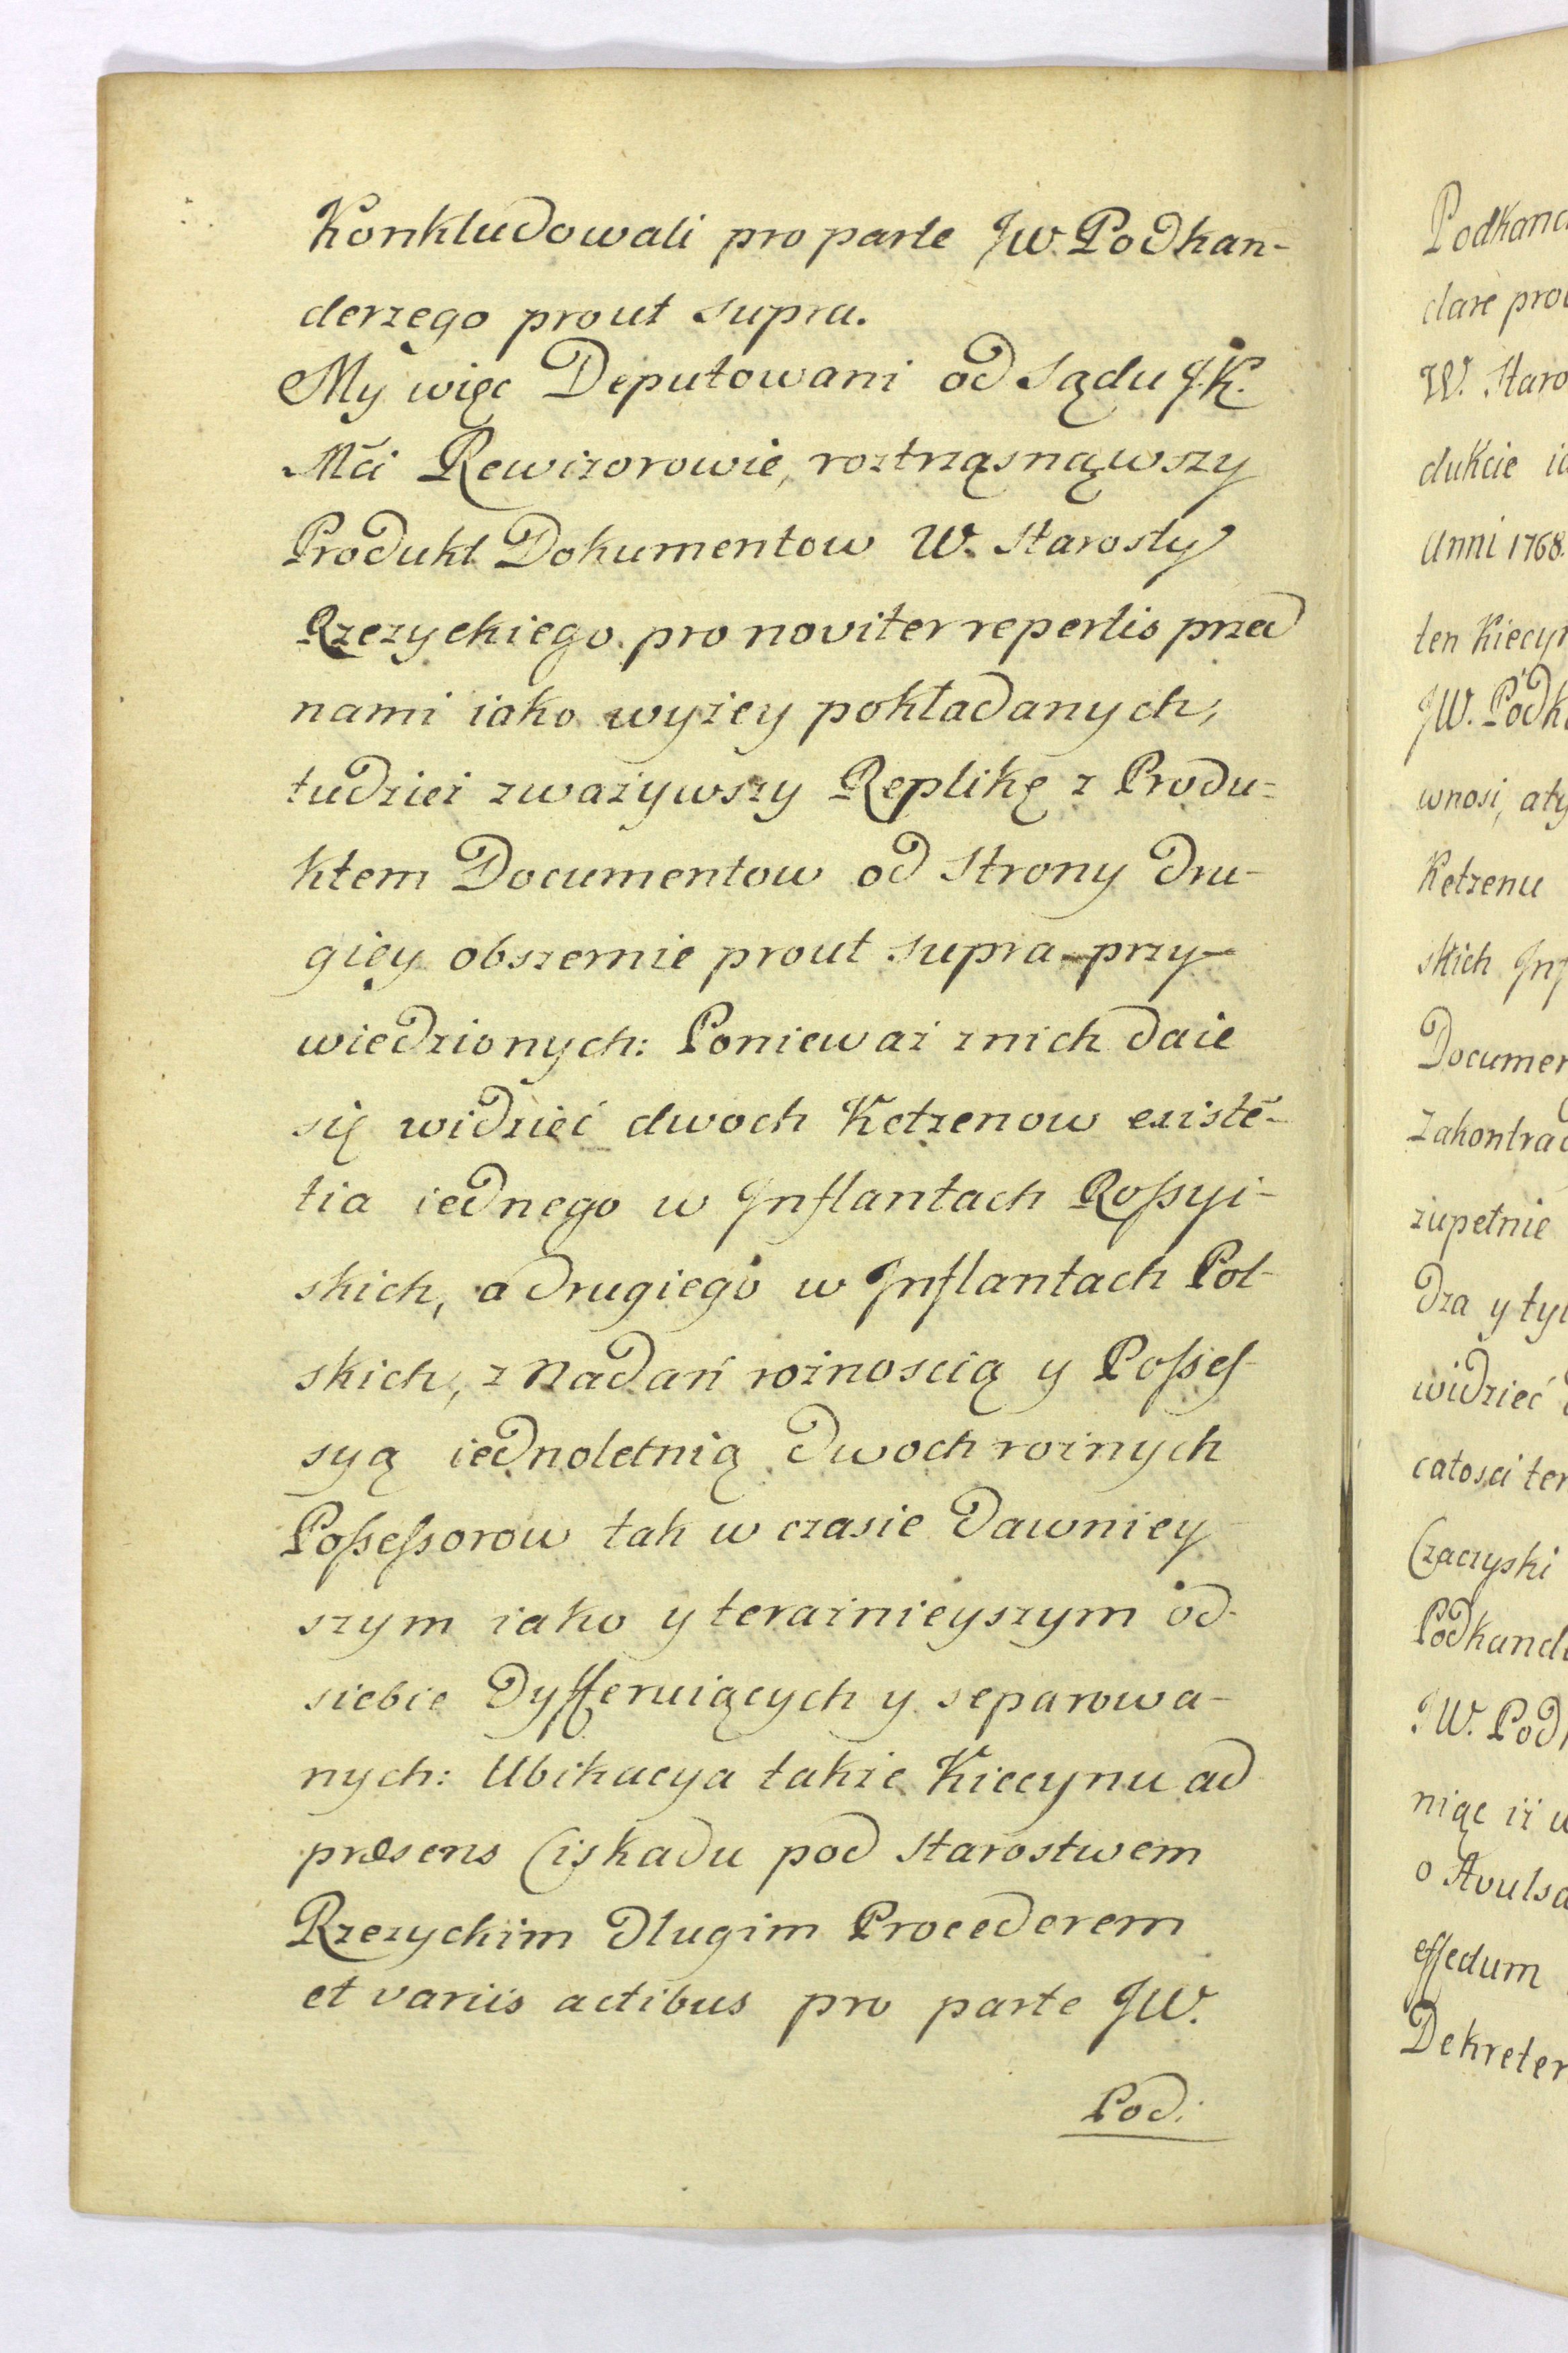 Konkludowali pro parte JW. Podkan-
clerzego prout supra.
My więc Deputowani od Sądu J.K.
Mći Rewizorowie, roztrząsnąwszy
Produkt Dokumentow W. Starosty
Rzezyckiego pro noviter repertis przed
nami iako wyżey pokładanych,
tudzież zważywszy Replikę z Produ-
ktem Documentow od Strony dru-
giey obszernie prout supra przy-
wiedzionych: Ponieważ z nich daie
się widzieć dwoch Ketzenow existē-
tia iednego w Inflantach Roßyi-
skich, a drugiego w Inflantach Pol-
skich, z Nadań rożnoscią y Poßes-
syą iednoletnią dwoch rożnych
Poßeßorow tak w czasie dawniey-
szym iako y teraznieyszym od
siebie dyfferuiących y separowa-
nych: Ubikacya także Kiecynu ad
præsens Ciskadu pod Starostwem
Rzezyckim dlugim Procederem
et variis actibus pro parte JW.
Pod:
Podkanc
clare prou
W. Staro
dukcie ia
Anni 1768.
ten Kiecyn
JW. Podk
wnosi, aty
Ketzenu
skich Inf
Documen
Zakontrac
zupełnie
dza y tyl
widzieć
całosci ter
Czaczyski
Podkancl
JW. Podk
niąc iż w
o Avulsa
effectum
Dekreter